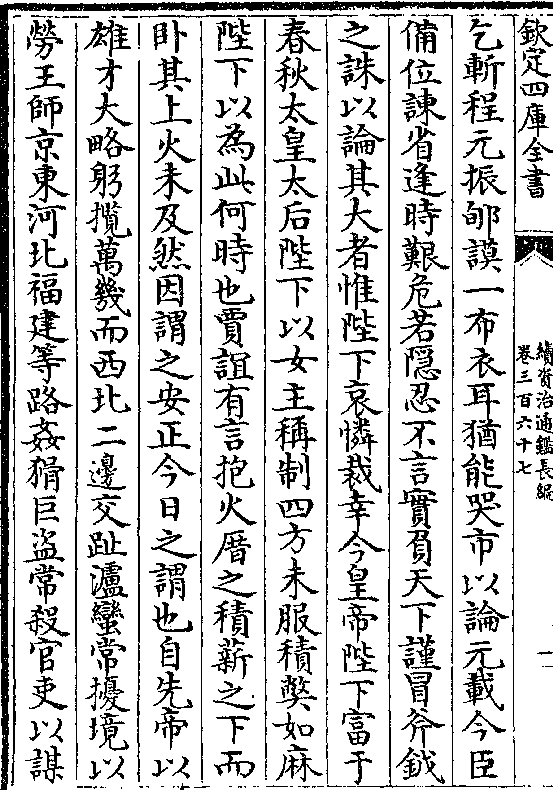 欽定四庫全書
續資治通鑑長編
卷三百六十七
一
乞斬程元振郇謨一布衣耳猶能哭市以論元載今臣
備位諫省逢時艱危若隱忍不言實負天下謹冒斧鉞
之誅以論其大者惟陛下哀憐裁幸今皇帝陛下富于
春秋太皇太后陛下以女主稱制四方未服積弊如麻
陛下以為此何時也賈誼有言抱火厝之積薪之下而
卧其上火未及然因謂之安正今日之謂也自先帝以
雄才大略躬攬萬幾而西北二邊交趾瀘蠻常擾境以
勞王師京東河北福建等路姦猾巨盜常殺官吏以謀